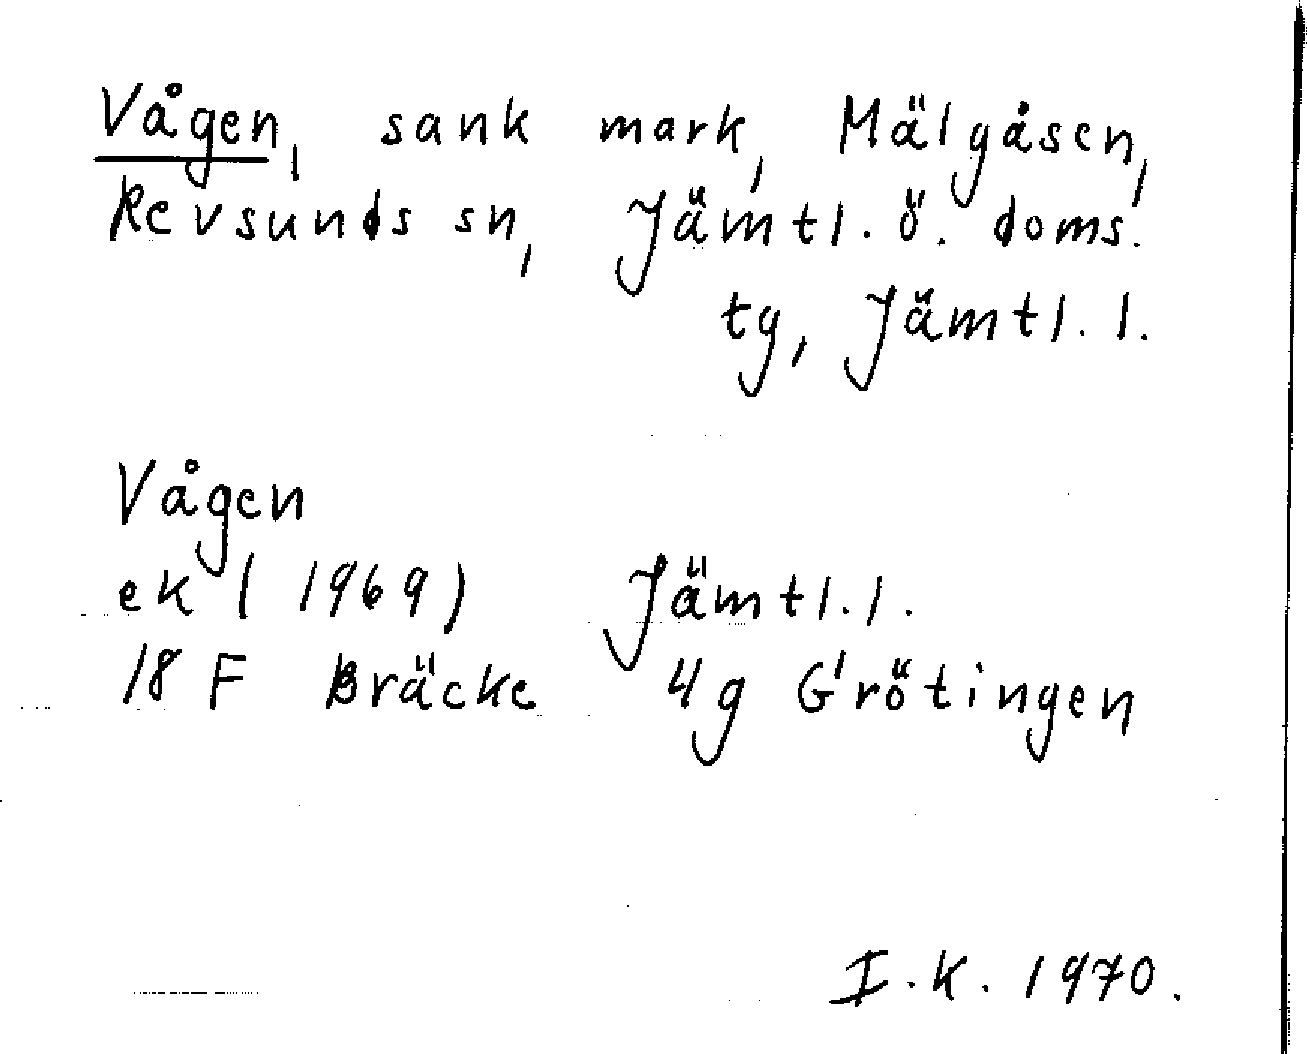 Vågen, sank mark, Mälgåsen,
Revsunds sn, Jämtl. ö. doms.
tg, Jämtl. l.
Vågen
ek (1969) Jämtl. l.
18 F Bräcke 4g Grötingen
I.K. 1970.